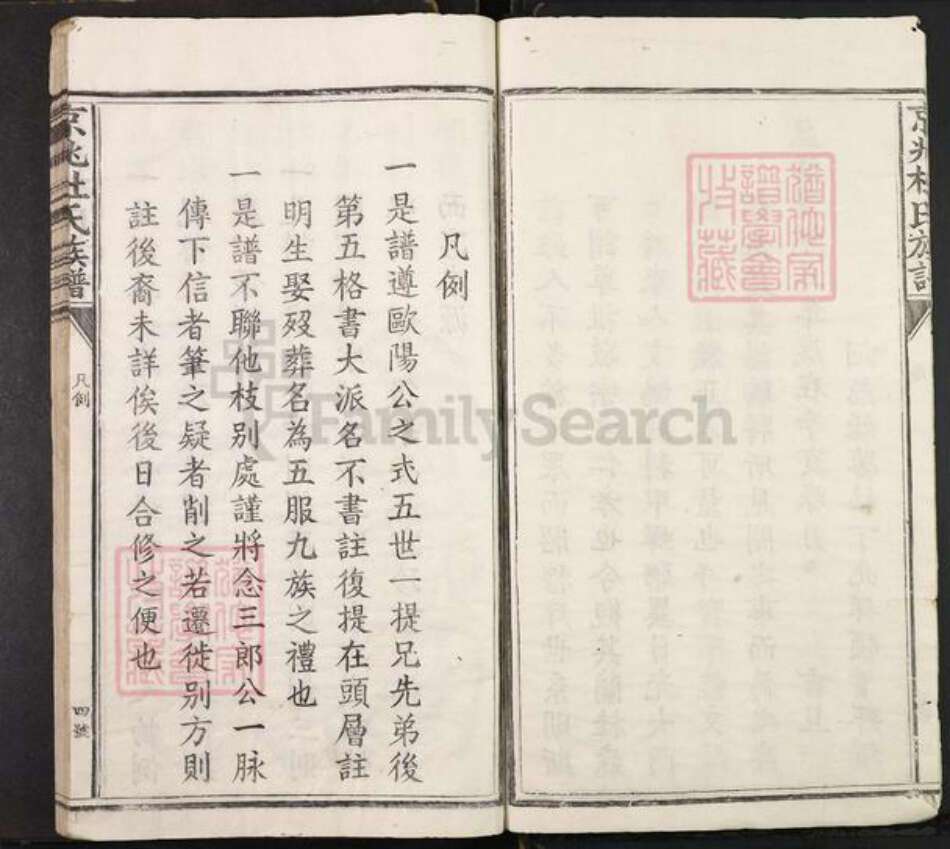 京兆杜氏族譜
凡例
一是譜遵歐陽公之式五世一提兄先弟後
第五格書大派名不書註復提在頭層註
明生娶殁葬名為五服九族之禮也
一是譜不聯他枝别處謹將念三郎公一脉
傳下信者筆之疑者削之若遷徙别方則
註後裔未詳俟後日合修之便也
京兆杜氏族譜
凡例
四號
FamilySearch